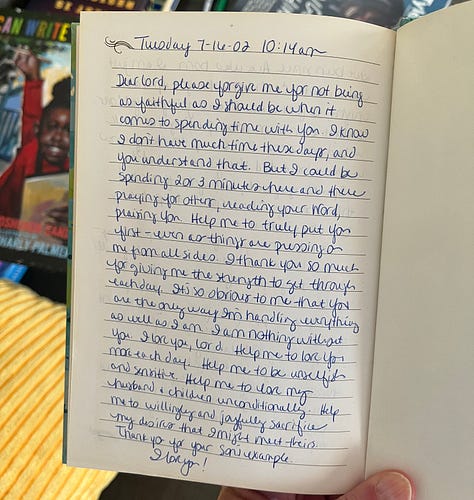 CAN WRITE
CHARLY PALMER
Tuesday 7-16-02 10:14am
Dear Lord, please forgive me for not being
as faithful as I should be when it
comes to spending time with you. I know
I don't have much time these days, and
you understand that. But I could be
spending 2 or 3 minutes here and there
praying for others, reading your Word,
praising You. Help me to truly put you
first - even as things are pressing on
me from all sides. I thank you so much
for giving me the strength to get through
each day. It is so obvious to me that you
are the only way I'm handling everything
as well as I am. I am nothing without
you. I love you, Lord. Help me to love you
more each day! Help me to be unselfish
and sensitive. Help me to love my
husband & children unconditionally. Help
me to willingly and joyfully sacrifice
my desires that I might meet theirs.
Thank you for your son's example.
I love you!